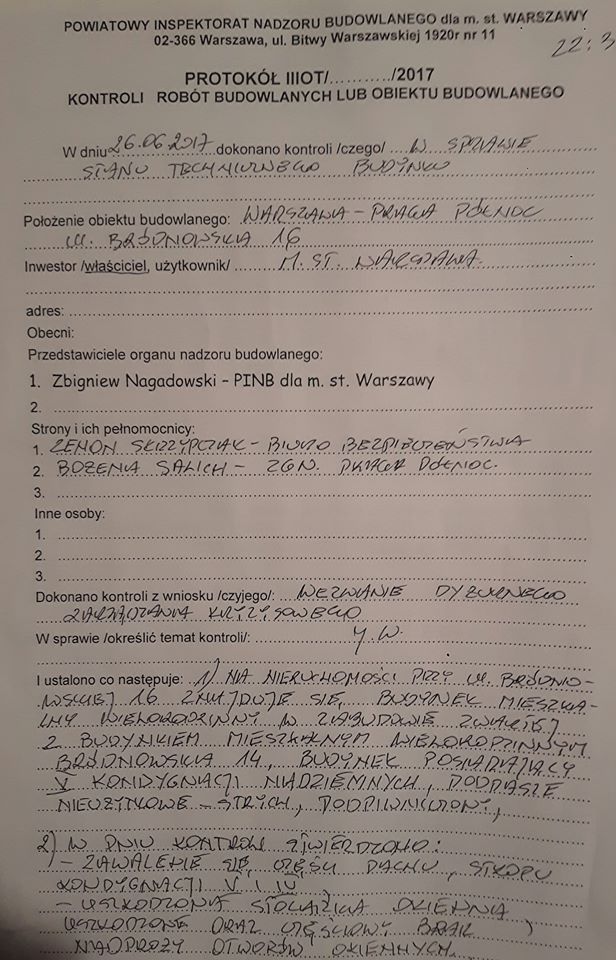 POWIATOWY INSPEKTORAT NADZORU BUDOWLANEGO dla m. st. WARSZAWY
02-366 Warszawa, ul. Bitwy Warszawskiej 1920r nr 11
22:3
PROTOKÓŁ IIIOT/........../2017
KONTROLI ROBÓT BUDOWLANYCH LUB OBIEKTU BUDOWLANEGO
W dniu 26.06.2017 dokonano kontroli /czego/ W SPRAWIE
STANU TECHNICZNEGO BUDYNKU
Położenie obiektu budowlanego: WARSZAWA - PRAGA PÓŁNOC
ul. BRÓDNOWSKA 16
Inwestor /właściciel, użytkownik/ M. ST. WARSZAWA.
adres:
Obecni:
Przedstawiciele organu nadzoru budowlanego:
1. Zbigniew Nagadowski – PINB dla m. st. Warszawy
2.
Strony i ich pełnomocnicy:
1. ZENON SKRZYPCZAK - BIURO BEZPIECZEŃSTWA
2. BOŻENA SALICH - ZGN. PRAGA PÓŁNOC.
3.
Inne osoby:
1.
2.
3.
Dokonano kontroli z wniosku /czyjego/: WEZWANIE DYŻURNEGO
ZARZĄDZANIA KRYZYSOWEGO
W sprawie /określić temat kontroli/: J.W.
I ustalono co następuje: 1) NA NIERUCHOMOŚCI PRZY ul. BRÓDNO-
WSKIEJ 16 ZNAJDUJE SIĘ BUDYNEK MIESZKA-
LNY WIELORODZINNY W ZABUDOWIE ZWARTEJ
Z BUDYNKIEM MIESZKALNYM WIELORODZINNYM
BRÓDNOWSKA 14, BUDYNEK POSIADAJĄCY
V KONDYGNACJI NADZIEMNYCH, PODDASZE
NIEUŻYTKOWE - STRYCH, PODPIWNICZONY,
2) W DNIU KONTROLI STWIERDZONO:
- ZAWALENIE SIĘ CZĘŚCI DACHU, STROPU
KONDYGNACJI V I IV,
- USZKODZONA STOLARKA OKIENNA,
USZKODZONE ORAZ CZĘŚCIOWY BRAK
NADPROŻY OTWORÓW OKIENNYCH